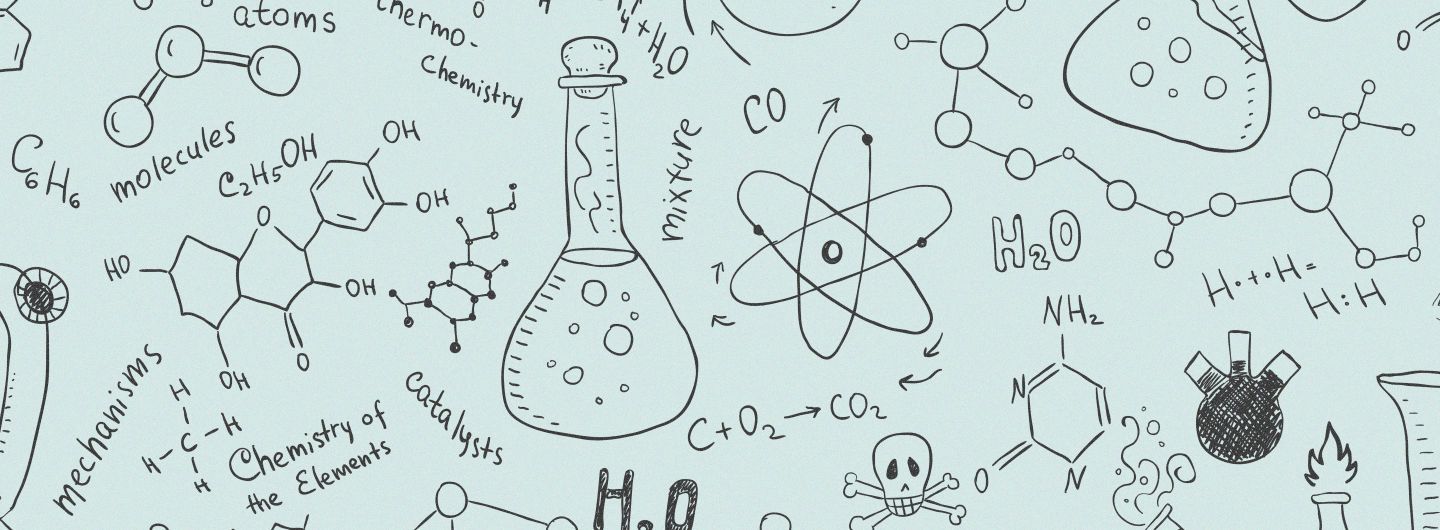 atoms
thermo-
chemistry
4+H2O
C6H6
molecules
C2H5OH
OH
OH
O
HO
OH
O
OH
mixture
CO
H2O
H·+·H=
H:H
NH2
N
N
O
mechanisms
H
H
C
H
H
Chemistry of
the Elements
catalysts
C+O2→CO2
H2O
O